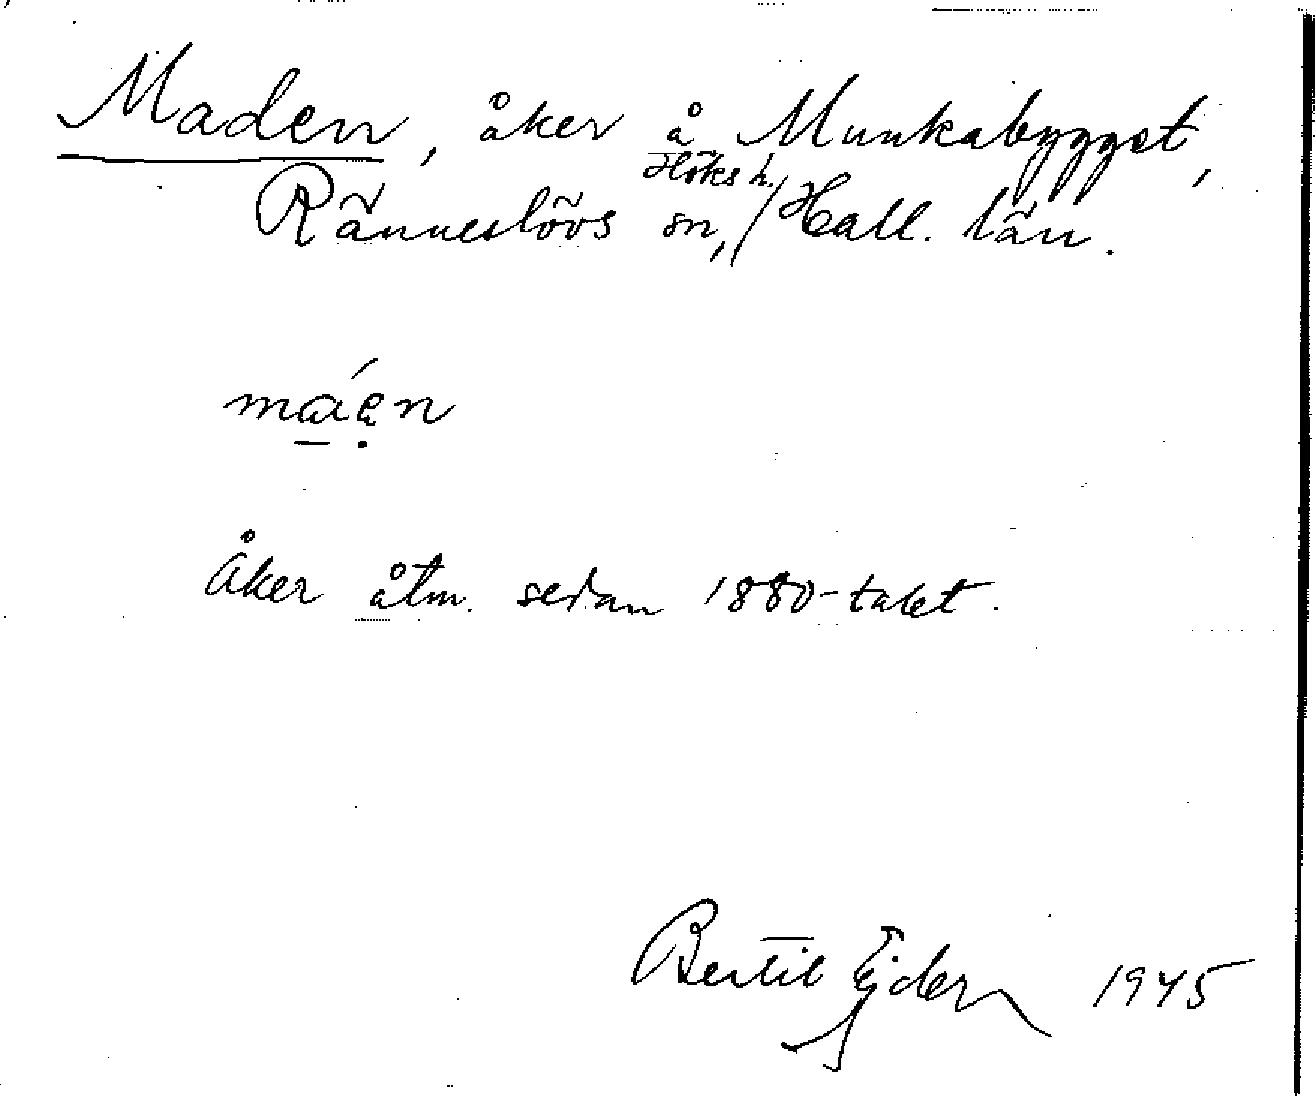 Maden, åker å Munkabygget,
Ränneslövs sn, Höks h. Hall. län.
máen
Åker åtm. sedan 1880-talet.
Bertil Ejder 1945